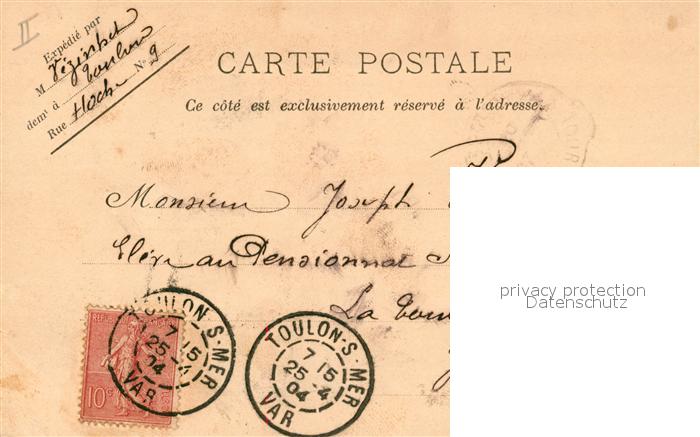 II
Expédié par
M Vézinhet
demt à Toulon
Rue Hoche No 9
CARTE POSTALE
Ce côté est exclusivement réservé à l'adresse.
Monsieur Joseph
Elève au Pensionnat
La Tour
REPUB
10c
TOULON-S-MER
7 15
25 -4
04
VAR
TOULON-S-MER
7 15
25 -4
04
VAR
TOUR
privacy protection
Datenschutz